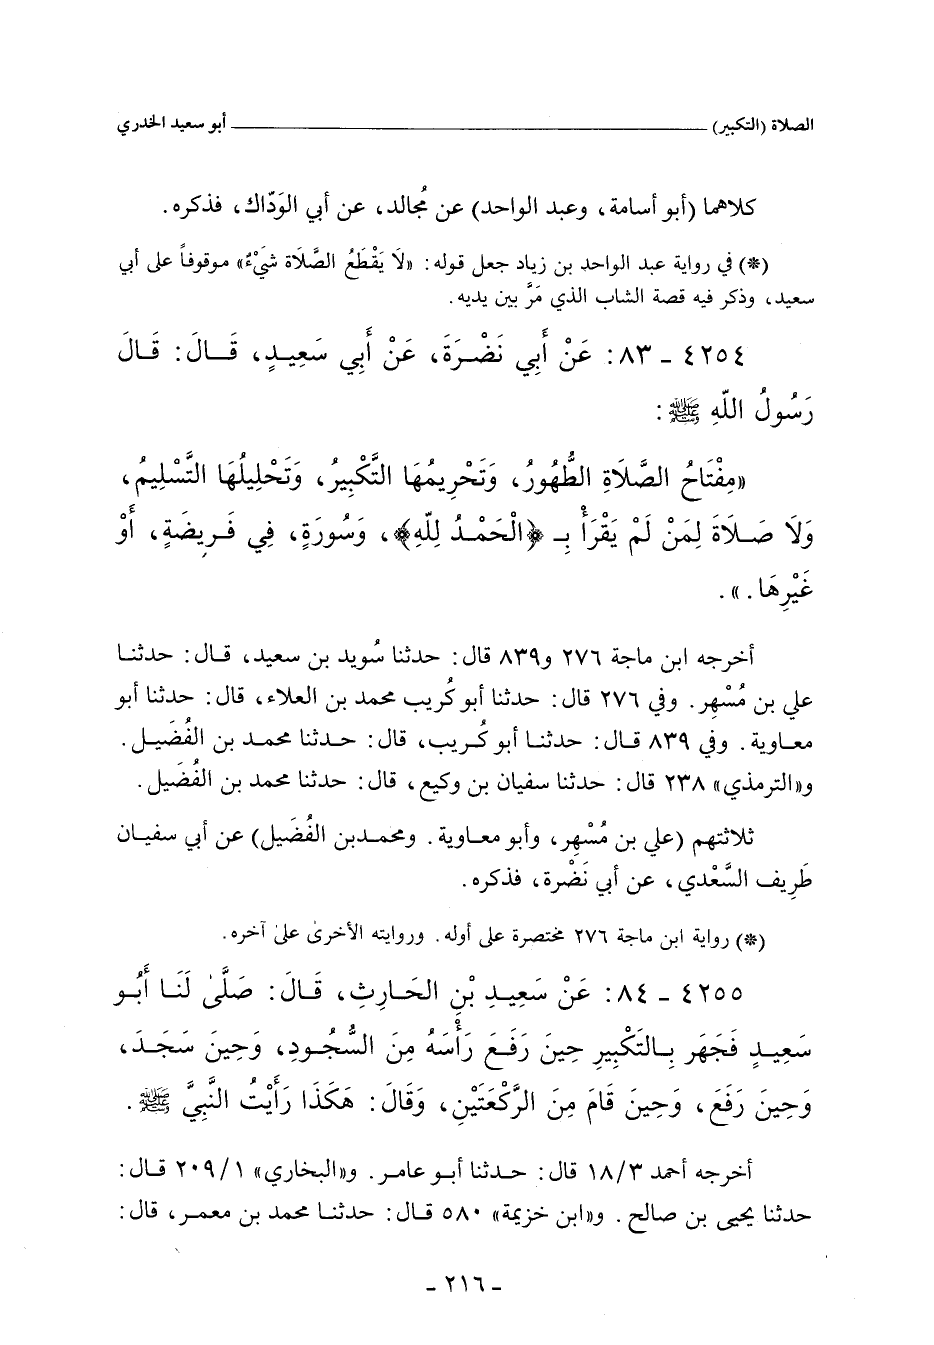 الصلاة (التكبير) ــــــــــــــــــــ أبو سعيد الخدري
كلاهما (أبو أسامة، وعبد الواحد) عن مُجالد، عن أبي الوَدّاك، فذكره.
(*) في رواية عبد الواحد بن زياد جعل قوله: «لَا يَقْطَعُ الصَّلَاة شَيْءٌ» موقوفاً على أبي
سعيد، وذكر فيه قصة الشاب الذي مَرَّ بين يديه.
٤٢٥٤ - ٨٣: عَنْ أَبِي نَضْرَةَ، عَنْ أَبِي سَعِيدٍ، قَالَ: قَالَ
رَسُولُ اللّهِ ﷺ:
«مِفْتَاحُ الصَّلَاةِ الطُّهُورُ، وَتَحْرِيمُهَا التَّكْبِيرُ، وَتَحْلِيلُهَا التَّسْلِيمُ،
وَلَا صَلَاةَ لِمَنْ لَمْ يَقْرَأْ بِـ ﴿الْحَمْدُ لِلّهِ﴾، وَسُورَةٍ، فِي فَرِيضَةٍ، أَوْ
غَيْرِهَا.».
أخرجه ابن ماجة ٢٧٦ و٨٣٩ قال: حدثنا سُويد بن سعيد، قال: حدثنا
علي بن مُسْهِر. وفي ٢٧٦ قال: حدثنا أبو كُريب محمد بن العلاء، قال: حدثنا أبو
معاوية. وفي ٨٣٩ قال: حدثنا أبو كُريب، قال: حدثنا محمد بن الفُضَيل.
و«الترمذي» ٢٣٨ قال: حدثنا سفيان بن وكيع، قال: حدثنا محمد بن الفُضَيل.
ثلاثتهم (علي بن مُسْهِر، وأبو معاوية. ومحمدبن الفُضَيل) عن أبي سفيان
طَرِيف السَّعْدي، عن أبي نَضْرة، فذكره.
(*) رواية ابن ماجة ٢٧٦ مختصرة على أوله. وروايته الأخرىٰ علىٰ آخره.
٤٢٥٥ - ٨٤: عَنْ سَعِيدِ بْنِ الحَارِثِ، قَالَ: صَلَّىٰ لَنَا أَبُو
سَعِيدٍ فَجَهَر بِالتَّكْبِيرِ حِينَ رَفَعَ رَأْسَهُ مِنَ السُّجُودِ، وَحِينَ سَجَدَ،
وَحِينَ رَفَعَ، وَحِينَ قَامَ مِنَ الرَّكْعَتَيْنِ، وَقَالَ: هَكَذَا رَأَيْتُ النَّبِيَّ ﷺ.
أخرجه أحمد ١٨/٣ قال: حدثنا أبو عامر. و«البخاري» ٢٠٩/١ قال:
حدثنا يحيى بن صالح. و«ابن خزيمة» ٥٨٠ قال: حدثنا محمد بن معمر، قال:
- ٢١٦ -